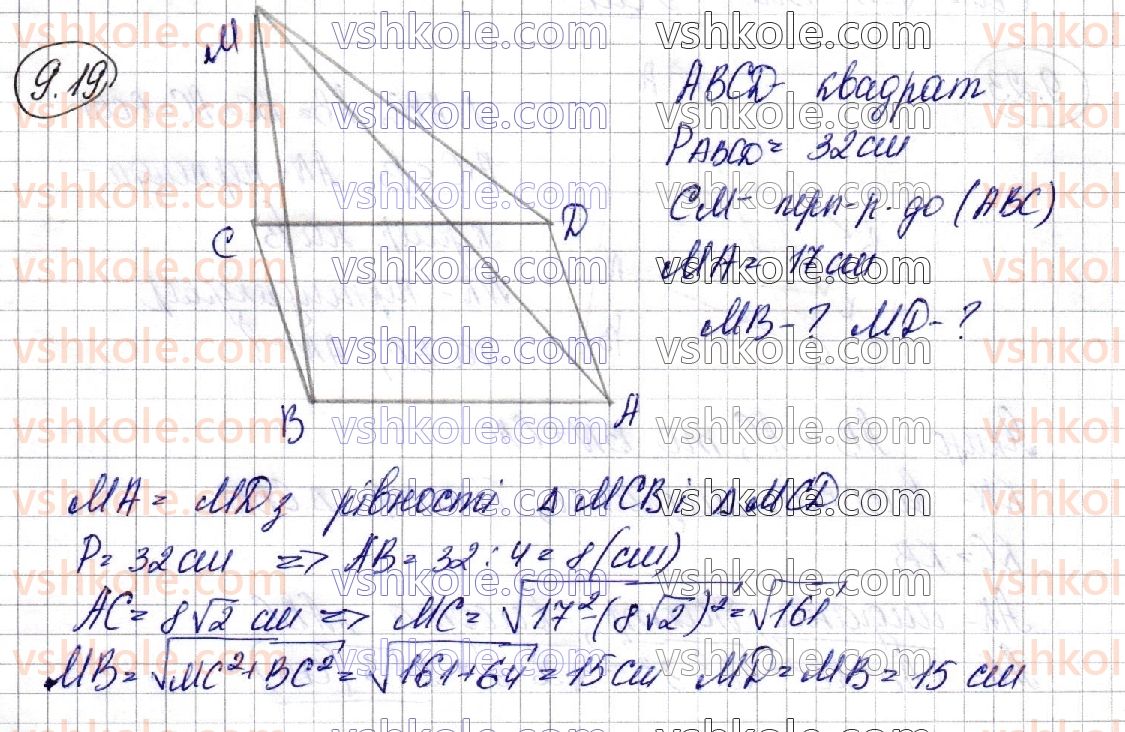 9.19.
M
C
D
B
A
ABCD - квадрат
P ABCD = 32 см
CM - перп-р. до (ABC)
MA = 17 см
MB - ? MD - ?
MA = MD з рівності △MCB і △MCD
P = 32 см => AB = 32 : 4 = 8 (см)
AC = 8√2 см => MC = √17²-(8√2)² = √161
MB = √MC²+BC² = √161+64 = 15 см MD = MB = 15 см
vshkole.com